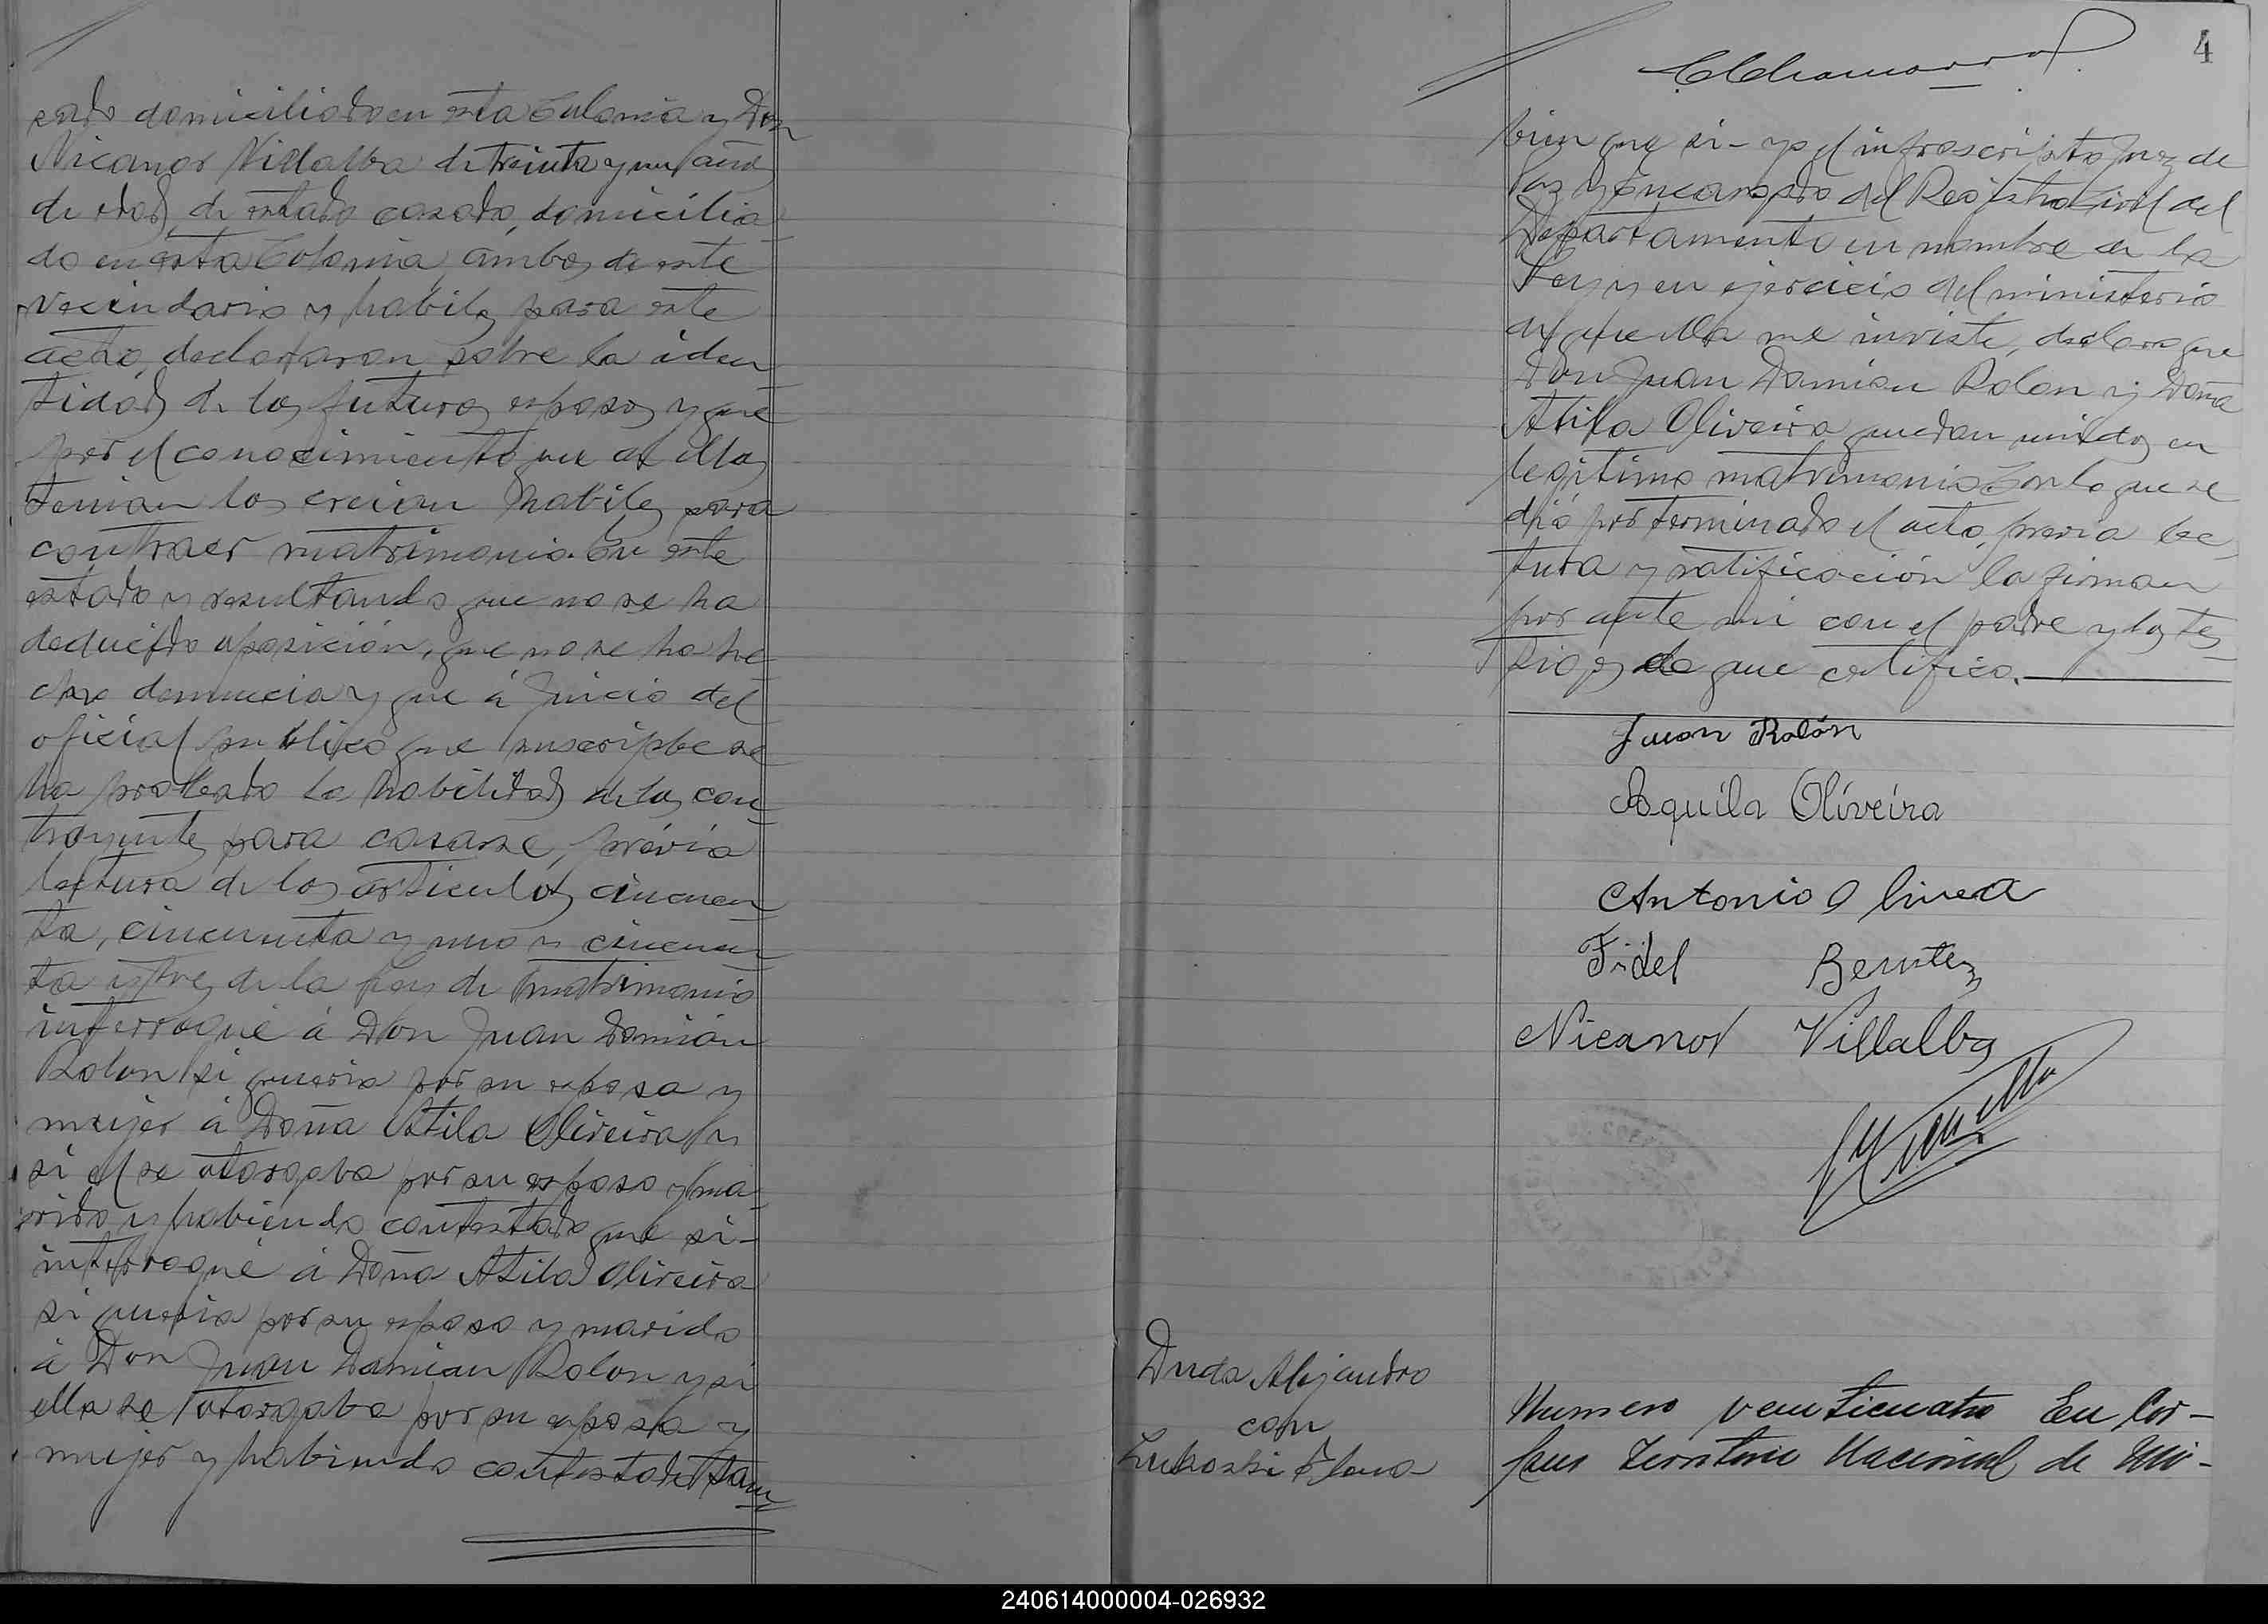 sado domiciliado en esta Colonia y Don
Nicanor Villalba de treinta y un años
de edad, de estado casado, domicilia-
do en esta Colonia, ambos de este
vecindario y habiles para este
acto, declararon sobre la iden
tidad de los futuros esposos y que
por el conocimiento que de ellos
tenian los creian habiles para
contraer matrimonio. En este
estado y resultando que no se ha
deducido oposición, que no se ha he
cho denuncia y que á juicio del
oficial publico que suscribe se
ha probado la habilidad de los con
trayentes para casarse, prévia
lectura de los articulos cincuen
ta, cincuenta y uno y cincuen
ta y tres de la ley de matrimonio
interrogué á Don Juan Damián
Rolon si queria por su esposa y
mujer á Doña Atila Oliveira y
si el se otorgaba por su esposo y ma
rido y habiendo contestado que si-
interrogué á Doña Atila Oliveira
si queria por su esposo y marido
á Don Juan Damian Rolon y si
ella se otorgaba por su esposa y
mujer y habiendo contestado tam
4
bien que si- yo el infrascripto Juez de
Paz y encargado del Registro Civil del
Departamento en nombre de la
Ley y en ejercicio del ministerio
de que ella me inviste, declaro que
Don Juan Damian Rolon y Doña
Atila Oliveira quedan unidos en
legitimo matrimonio Con lo que se
dió por terminado el acto, previa lec
tura y ratificación la firman
por ante mi con el padre y los tes
tigos de que certifico.
Juan Rolón
Aquila Oliveira
Antonio Olivera
Fidel Benitez
Nicanor Villalba
Duda Alejandro
con
Lukoski Elena
Numero veinticuatro En Cor-
pus Territorio Nacional de Mi-
240614000004-026932